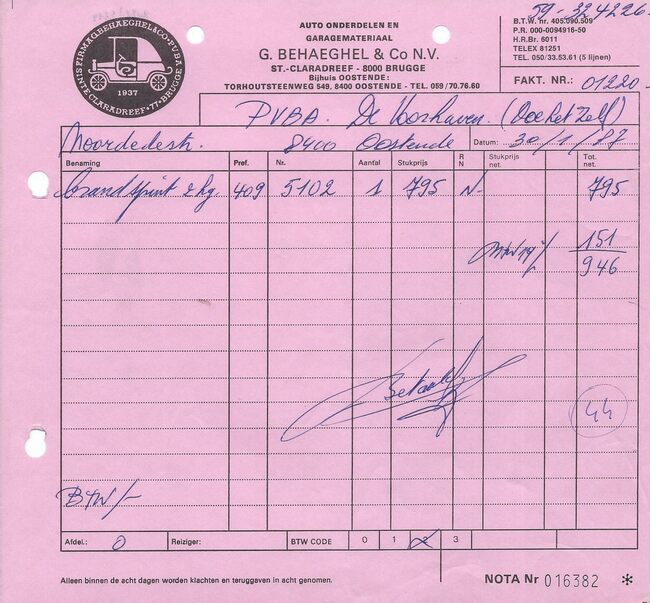 59-324226.
AUTO ONDERDELEN EN
GARAGEMATERIAAL
G. BEHAEGHEL & Co N.V.
ST.-CLARADREEF - 8000 BRUGGE
Bijhuis OOSTENDE:
TORHOUTSESTEENWEG 549, 8400 OOSTENDE - TEL. 059/70.76.60
B.T.W. nr. 405.090.509
P.R. 000-0094916-50
H.R.Br. 6011
TELEX 81251
TEL. 050/33.53.61 (5 lijnen)
FIRMA G. BEHAEGHEL & CO · PVBA
SINTE CLARADREEF · 77 · BRUGGE
1937
FAKT. NR.: 01220
PVBA. De Voorhaven. (Doe het Zelf)
8400 Oostende
Datum: 30/1/'87
Benaming Pref. Nr. Aantal Stukprijs R N Stukprijs net. Tot. net.
2 kg. 409 5102 1 795 N 795
BTW 19% 151
946
Betaald
44
BTW/-
Afdel.: 0 Reiziger: BTW CODE 0 1 2 3
Alleen binnen de acht dagen worden klachten en teruggaven in acht genomen.
NOTA Nr 016382 *